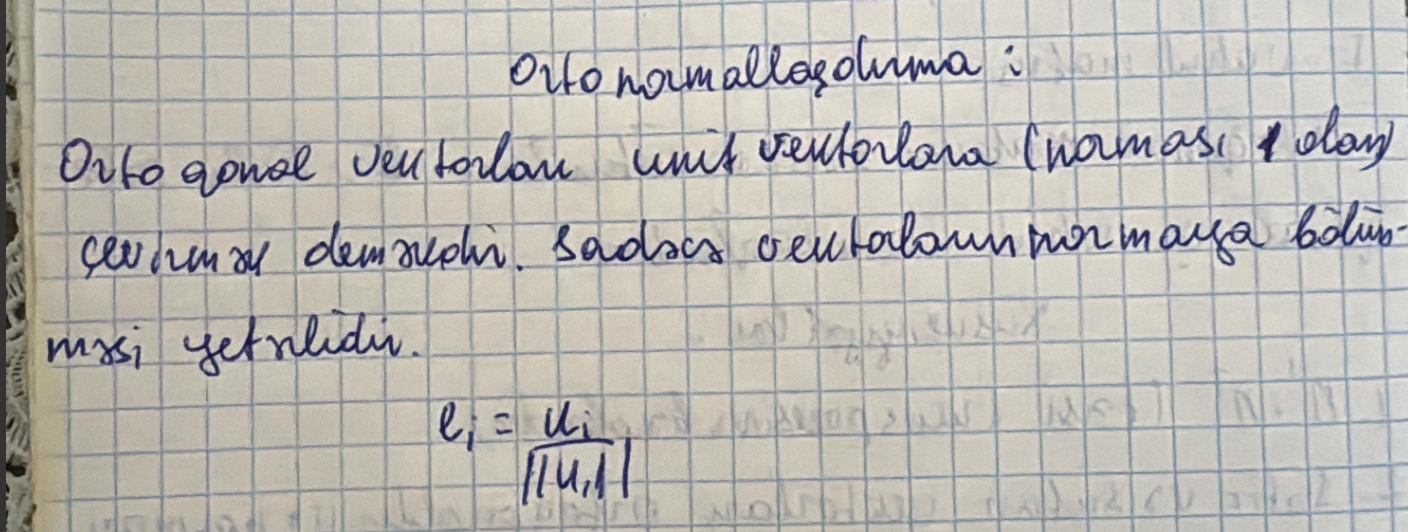 Ortonormallaşdırma:
Ortoqonal vektorları unit vektorlara (norması 1 olan)
çevirmək deməkdir. Sadəcə vektorların normaya bölün-
məsi yetərlidir.
e_i = u_i / ||u_i||